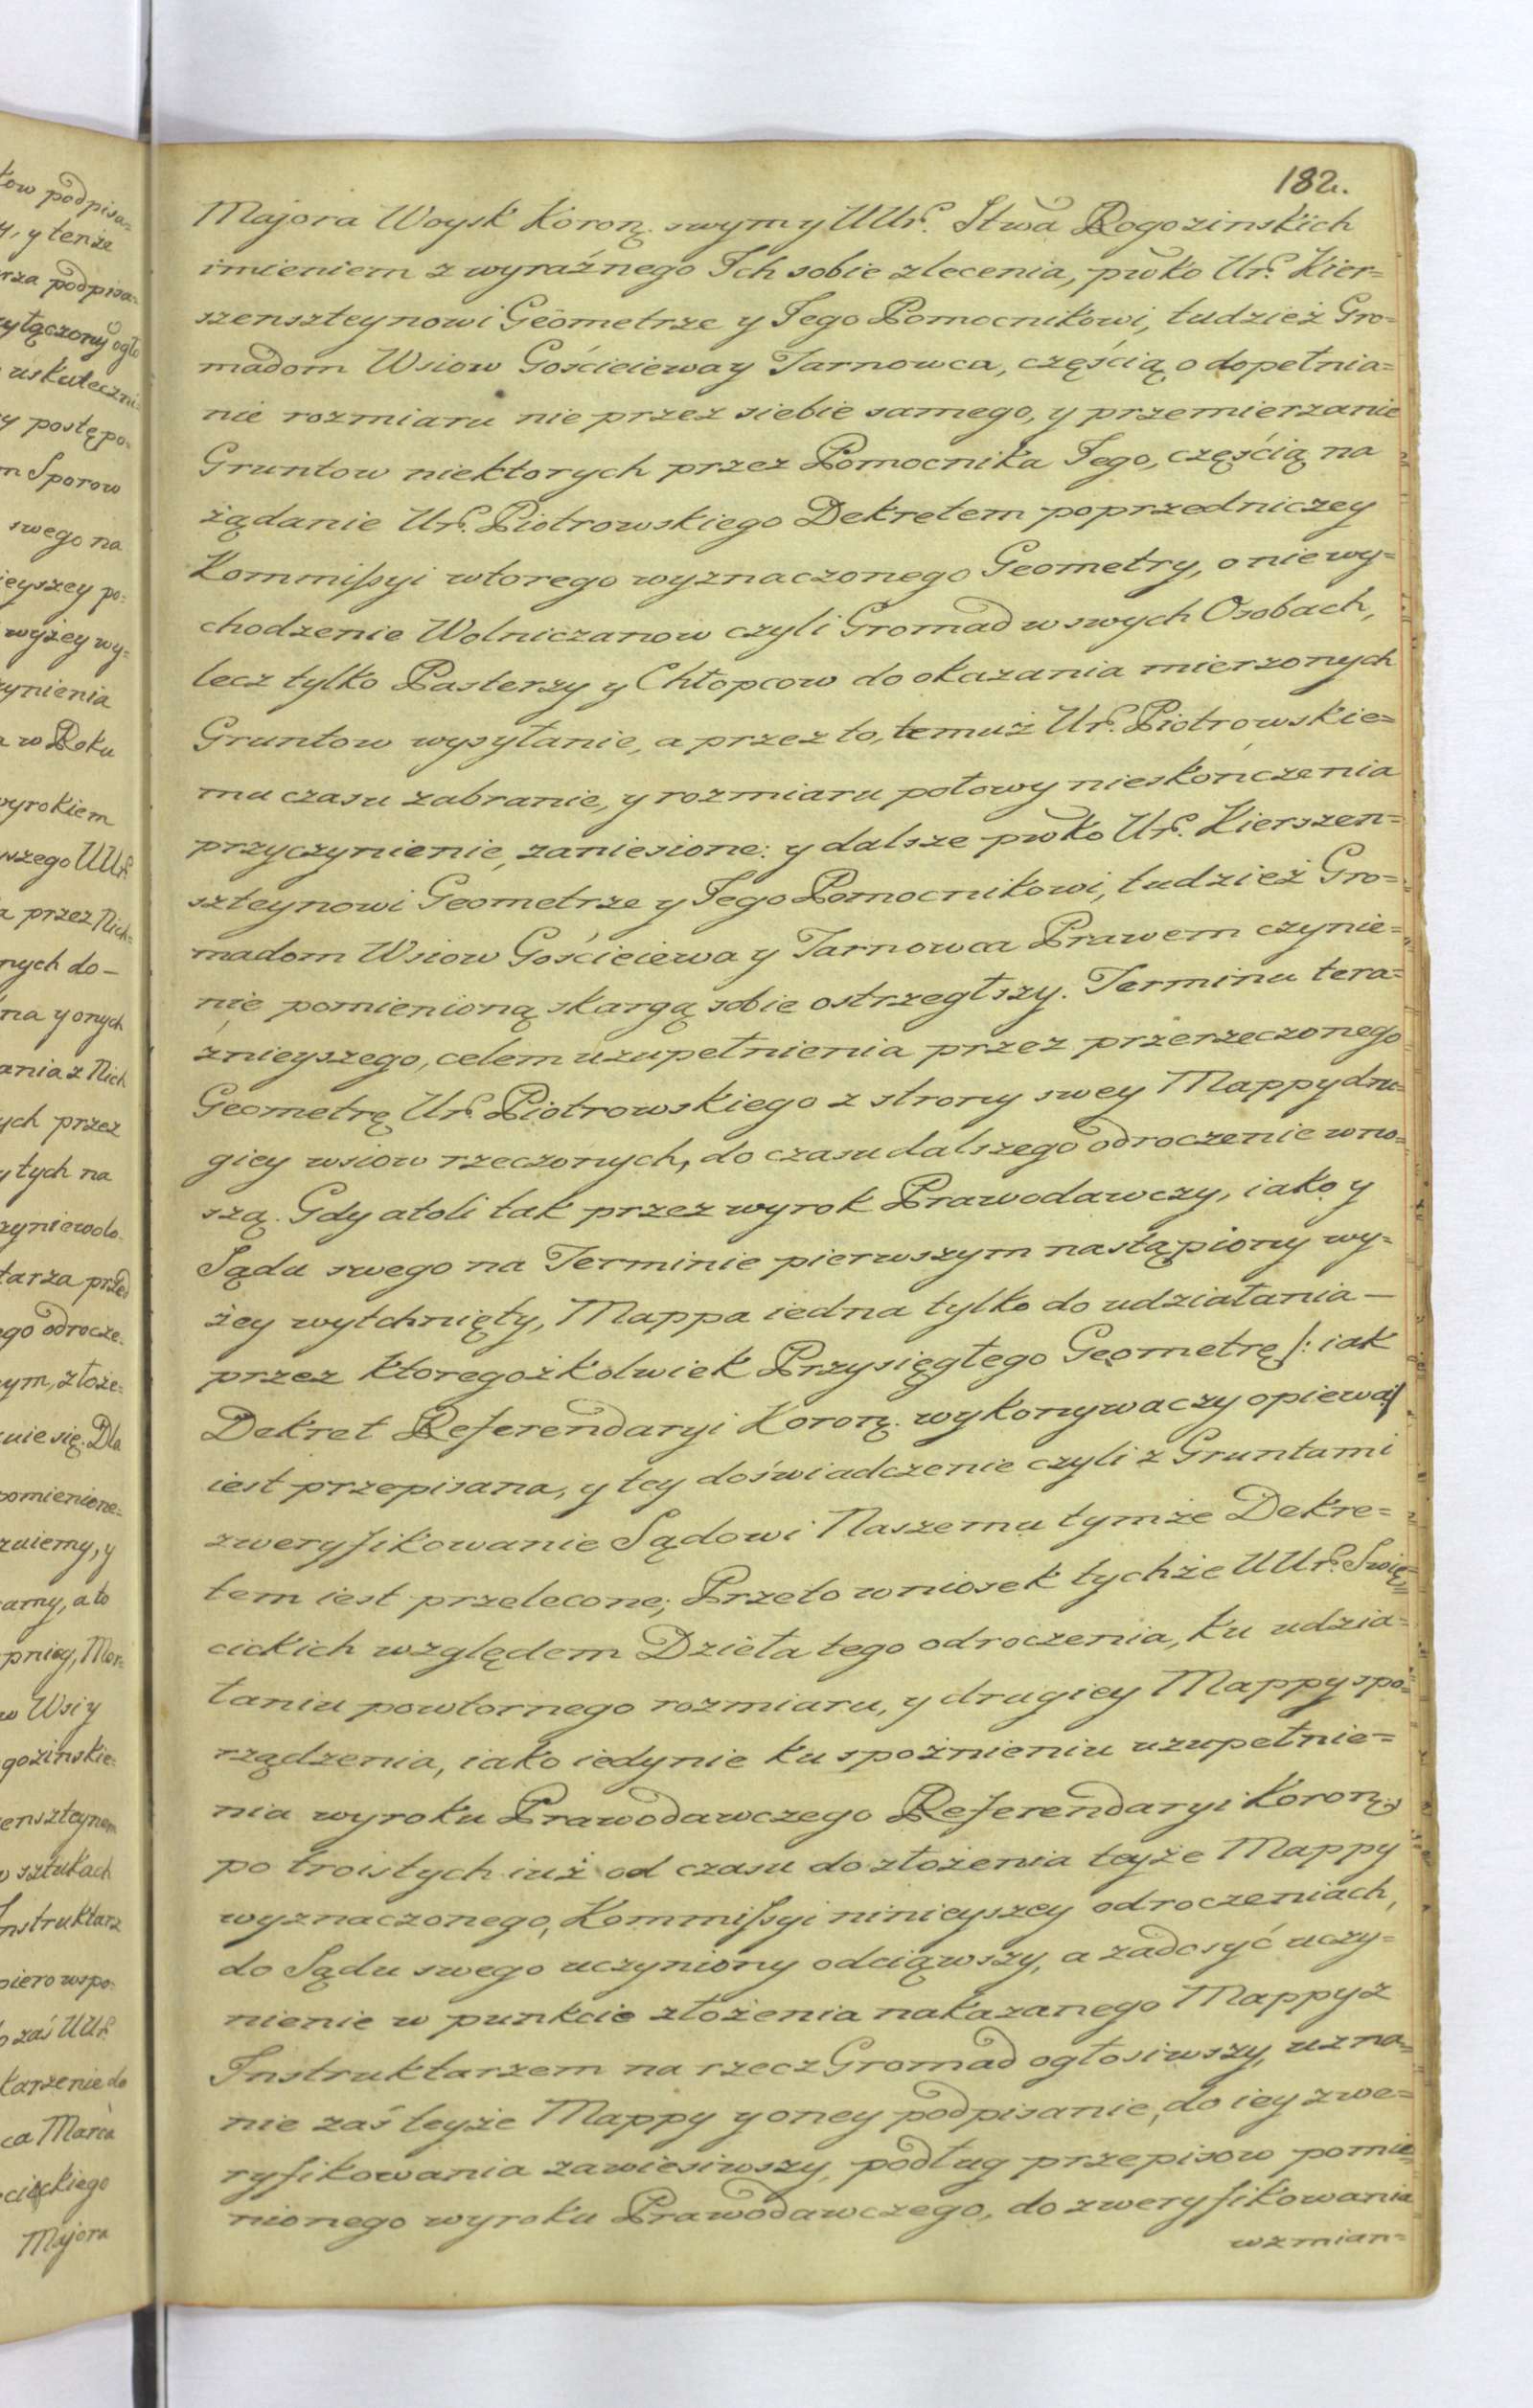 182.
Majora Woysk Koroñ. swym y UUr. Stwa Rogozinskich
imieniem z wyraźnego Ich sobie zlecenia, pwko Ur. Kier=
szenszteynowi Geometrze y Jego Pomocnikowi, tudzież Gro=
madom Wsiow Gościeiewa y Tarnowca, częścią o dopełnia=
nie rozmiaru nie przez siebie samego, y przemierzanie
Gruntow niektorych przez Pomocnika Jego, częścią na
żądanie Ur. Piotrowskiego Dekretem poprzedniczey
Kommissyi wtorego wyznaczonego Geometry, o nie wy=
chodzenie Wolniczanow czyli Gromad w swych Osobach,
lecz tylko Pasterzy y Chłopcow do okazania mierzonych
Gruntow wysyłanie, a przez to, temuż Ur. Piotrowskie=
mu czasu zabranie, y rozmiaru połowy nieskończenia
przyczynienie, zaniesione: y dalsze pwko Ur. Kierszen=
szteynowi Geometrze y Jego Pomocnikowi, tudzież Gro=
madom Wsiow Gościeiewa y Tarnowca Prawem czynie=
nie pomienioną skargą sobie ostrzegłszy. Terminu tera=
źnieyszego, celem uzupełnienia przez przerzeczonego
Geometrę Ur. Piotrowskiego z strony swey Mappy dru=
giey wsiow rzeczonych, do czasu dalszego odroczenie wno=
szą. Gdy atoli tak przez wyrok Prawodawczy, iako y
Sądu swego na Terminie pierwszym nastąpiony wy=
żey wytchnięty, Mappa iedna tylko do udziałania —
przez ktoregożkolwiek Przysięgłego Geometrę /: iak
Dekret Referendaryi Koroñ. wykonywaczy opiewa :/
iest przepisana, y tey doświadczenie czyli z Gruntami
zweryfikowanie Sądowi Naszemu tymże Dekre=
tem iest przelecone; Przeto wniosek tychże UUr. Swię=
cickich względem Dzieła tego odroczenia, ku udzia=
łaniu powtornego rozmiaru, y drugiey Mappy spo=
rządzenia, iako iedynie ku spoźnieniu uzupełnie=
nia wyroku Prawodawczego Referendaryi Koroñ.
po troistych iuż od czasu do złożenia teyże Mappy
wyznaczonego, Kommissyi ninieyszey odroczeniach,
do Sądu swego uczyniony odciąwszy, a zadosyć uczy=
nienie w punkcie złożenia nakazanego Mappy z
Instruktarzem na rzecz Gromad ogłosiwszy, uzna=
nie zaś teyże Mappy y oney podpisanie, do iey zwe=
ryfikowania zawiesiwszy, podług przepisow pomie=
nionego wyroku Prawodawczego, do zweryfikowania
wzmian=